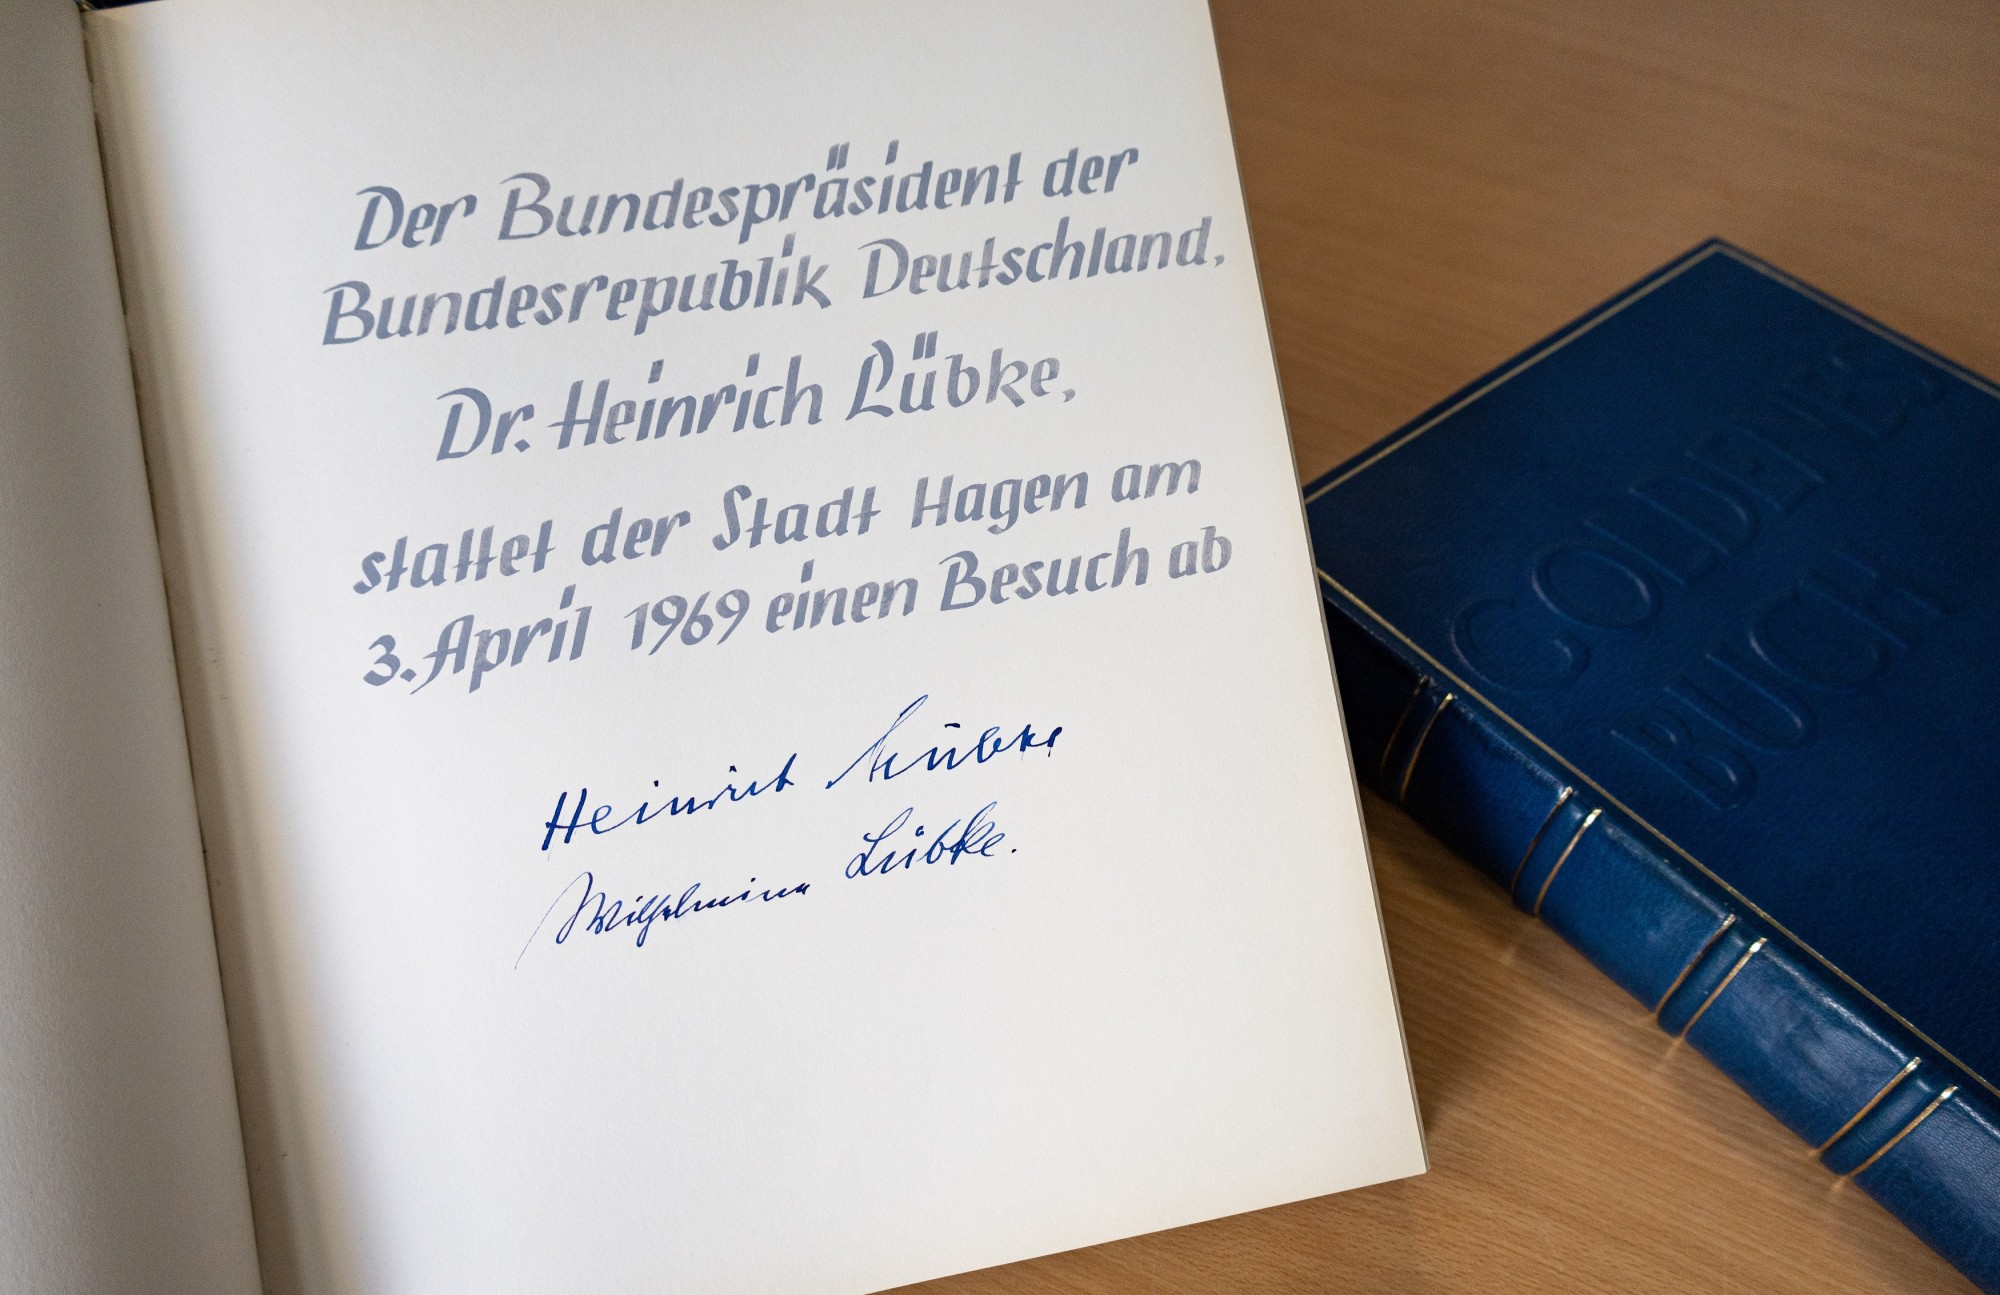 Der Bundespräsident der
Bundesrepublik Deutschland,
Dr. Heinrich Lübke,
stattet der Stadt Hagen am
3. April 1969 einen Besuch ab
Heinrich Lübke
Wilhelmine Lübke.
GOLDENES
BUCH